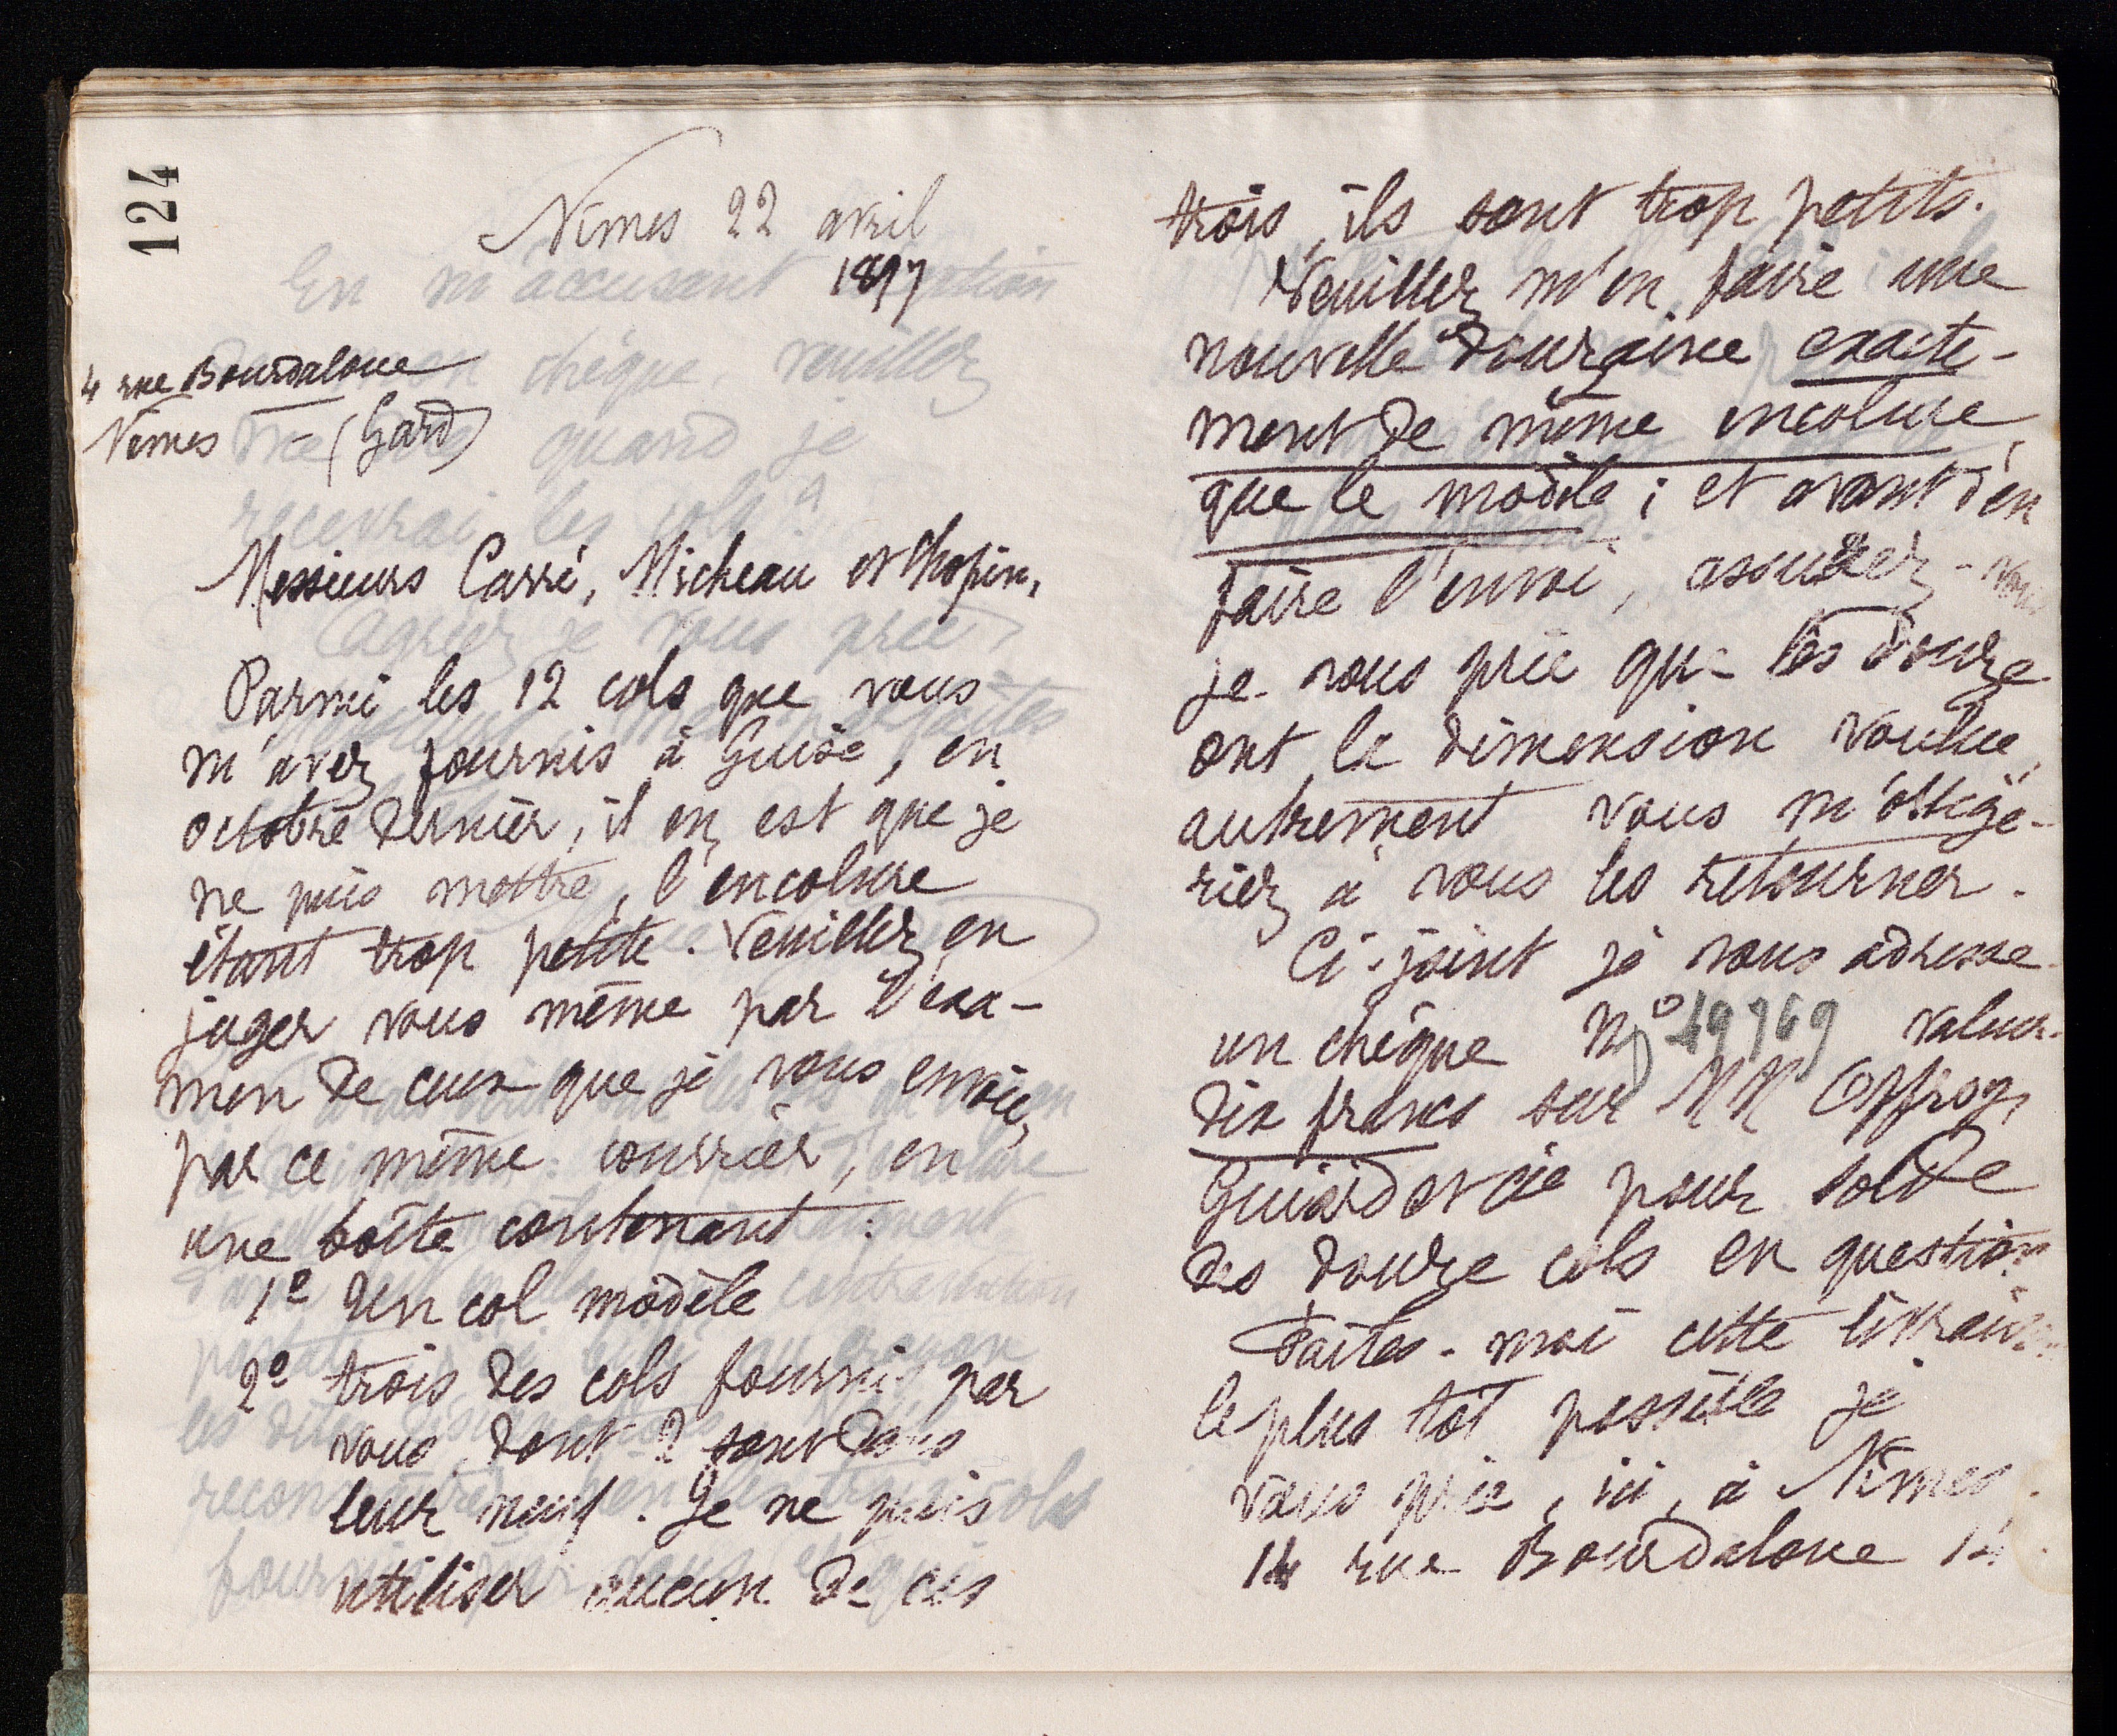 124
Nîmes 22 avril
1897
14 rue Bourdaloue
Nîmes - (Gard)
Messieurs Carré, Micheau et Chopin,
Parmi les 12 cols que vous
m'avez fournis à Guise, en
octobre dernier, il en est que je
ne puis mettre, l'encolure
étant trop petite. Veuillez en
juger vous même par l'exa-
men de ceux que je vous envoie,
par ce même courrier, en
une boîte contenant :
1º Un col modèle
2º trois des cols fournis par
vous dont 2 sont dans
leur neuf. Je ne puis
utiliser aucun de ces
trois, ils sont trop petits.
Veuillez m'en faire une
nouvelle douzaine exacte-
ment de même encolure
que le modèle ; et avant d'en
faire l'envoi, assurez-vous
je vous prie que les douze
ont la dimension voulue,
autrement vous m'oblige-
riez à vous les retourner.
Ci-joint je vous adresse
un chèque Nº valeur
dix francs sur MM Offroy,
Guiard et cie pour solde
des douze cols en question
Faites-moi cette livraison
le plus tôt possible je
vous prie, ici, à Nîmes,
14 rue Bourdaloue 14.